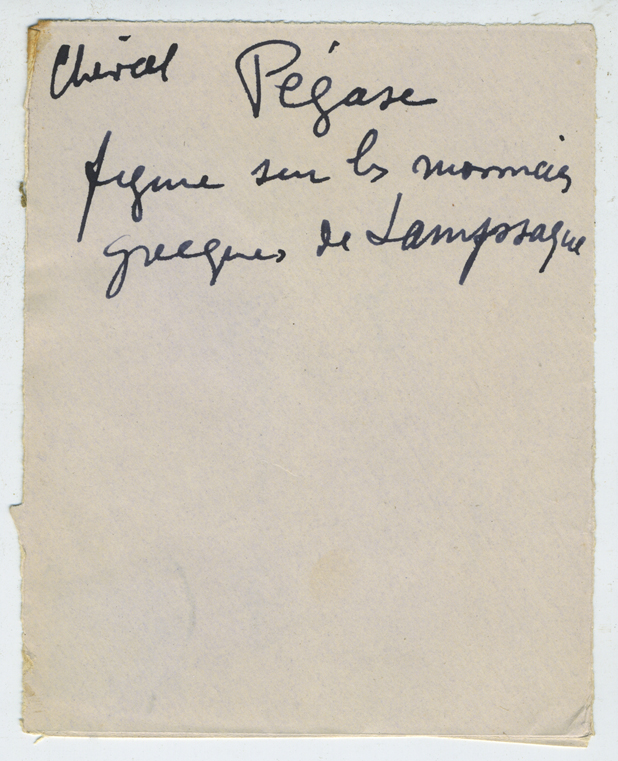 Cheval Pégase
figure sur les monnaies
grecques de Lampsaque